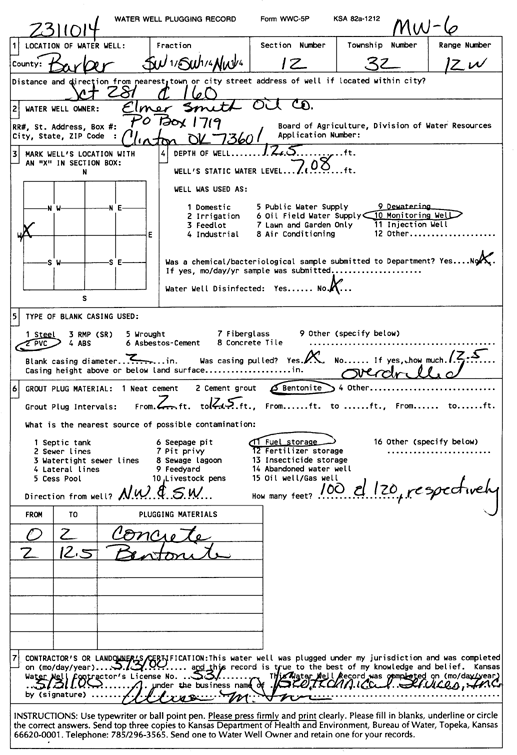 Z311014
WATER WELL PLUGGING RECORD Form WWC-5P KSA 82a-1212
MW-6
1 LOCATION OF WATER WELL: Fraction Section Number Township Number Range Number
County: Barber SW 1/4 SW 1/4 NW 1/4 12 32 12 W
Distance and direction from nearest town or city street address of well if located within city?
Jct 281 & 160
2 WATER WELL OWNER: Elmer Smith Oil Co.
RR#, St. Address, Box #: PO Box 1719 Board of Agriculture, Division of Water Resources
City, State, ZIP Code : Clinton OK 73601 Application Number:
3 MARK WELL'S LOCATION WITH AN "X" IN SECTION BOX:
N
N W N E
W X E
S W S E
S
4 DEPTH OF WELL.....12.5.....ft.
WELL'S STATIC WATER LEVEL..7.08....ft.
WELL WAS USED AS:
1 Domestic 5 Public Water Supply 9 Dewatering
2 Irrigation 6 Oil Field Water Supply 10 Monitoring Well
3 Feedlot 7 Lawn and Garden Only 11 Injection Well
4 Industrial 8 Air Conditioning 12 Other
Was a chemical/bacteriological sample submitted to Department? Yes....No X
If yes, mo/day/yr sample was submitted
Water Well Disinfected: Yes...... No X
5 TYPE OF BLANK CASING USED:
1 Steel 3 RMP (SR) 5 Wrought 7 Fiberglass 9 Other (specify below)
2 PVC 4 ABS 6 Asbestos-Cement 8 Concrete Tile
Blank casing diameter...2....in. Was casing pulled? Yes. X No..... If yes, how much. 12.5
Casing height above or below land surface..................in. overdrilled
6 GROUT PLUG MATERIAL: 1 Neat cement 2 Cement grout 3 Bentonite 4 Other
Grout Plug Intervals: From. 2 ..ft. to 12.5 ft., From......ft. to......ft., From...... to......ft.
What is the nearest source of possible contamination:
1 Septic tank 6 Seepage pit 11 Fuel storage 16 Other (specify below)
2 Sewer lines 7 Pit privy 12 Fertilizer storage
3 Watertight sewer lines 8 Sewage lagoon 13 Insecticide storage
4 Lateral lines 9 Feedyard 14 Abandoned water well
5 Cess Pool 10 Livestock pens 15 Oil well/Gas well
Direction from well? NW & SW How many feet? 100 & 120, respectively
FROM TO PLUGGING MATERIALS
0 2 Concrete
2 12.5 Bentonite
7 CONTRACTOR'S OR LANDOWNER'S CERTIFICATION: This water well was plugged under my jurisdiction and was completed
on (mo/day/year)...5/3/00... and this record is true to the best of my knowledge and belief. Kansas
Water Well Contractor's License No. 531 This Water Well Record was completed on (mo/day/year)
5/31/00 under the business name of Geotechnical Services, Inc.
by (signature)
INSTRUCTIONS: Use typewriter or ball point pen. Please press firmly and print clearly. Please fill in blanks, underline or circle
the correct answers. Send top three copies to Kansas Department of Health and Environment, Bureau of Water, Topeka, Kansas
66620-0001. Telephone: 785/296-3565. Send one to Water Well Owner and retain one for your records.